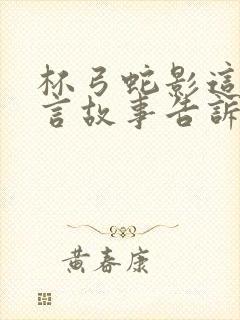 杯弓蛇影這
言故事告訴
黃春康